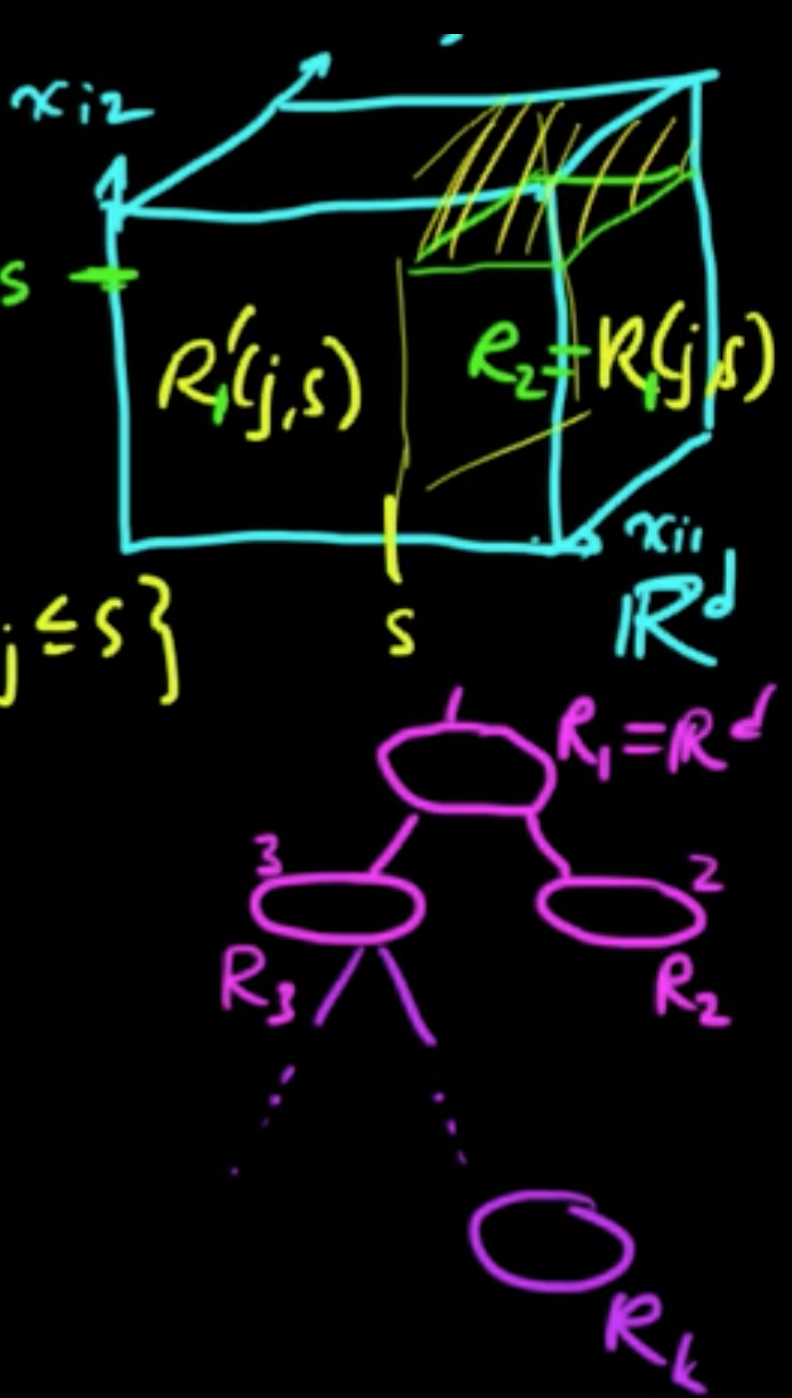 x_{i2}
s
R_1'(j,s)
R_2 = R_1(j,s)
x_{i1}
j ≤ s}
s
ℝ^d
1
R_1 = ℝ^d
3
2
R_3
R_2
R_k